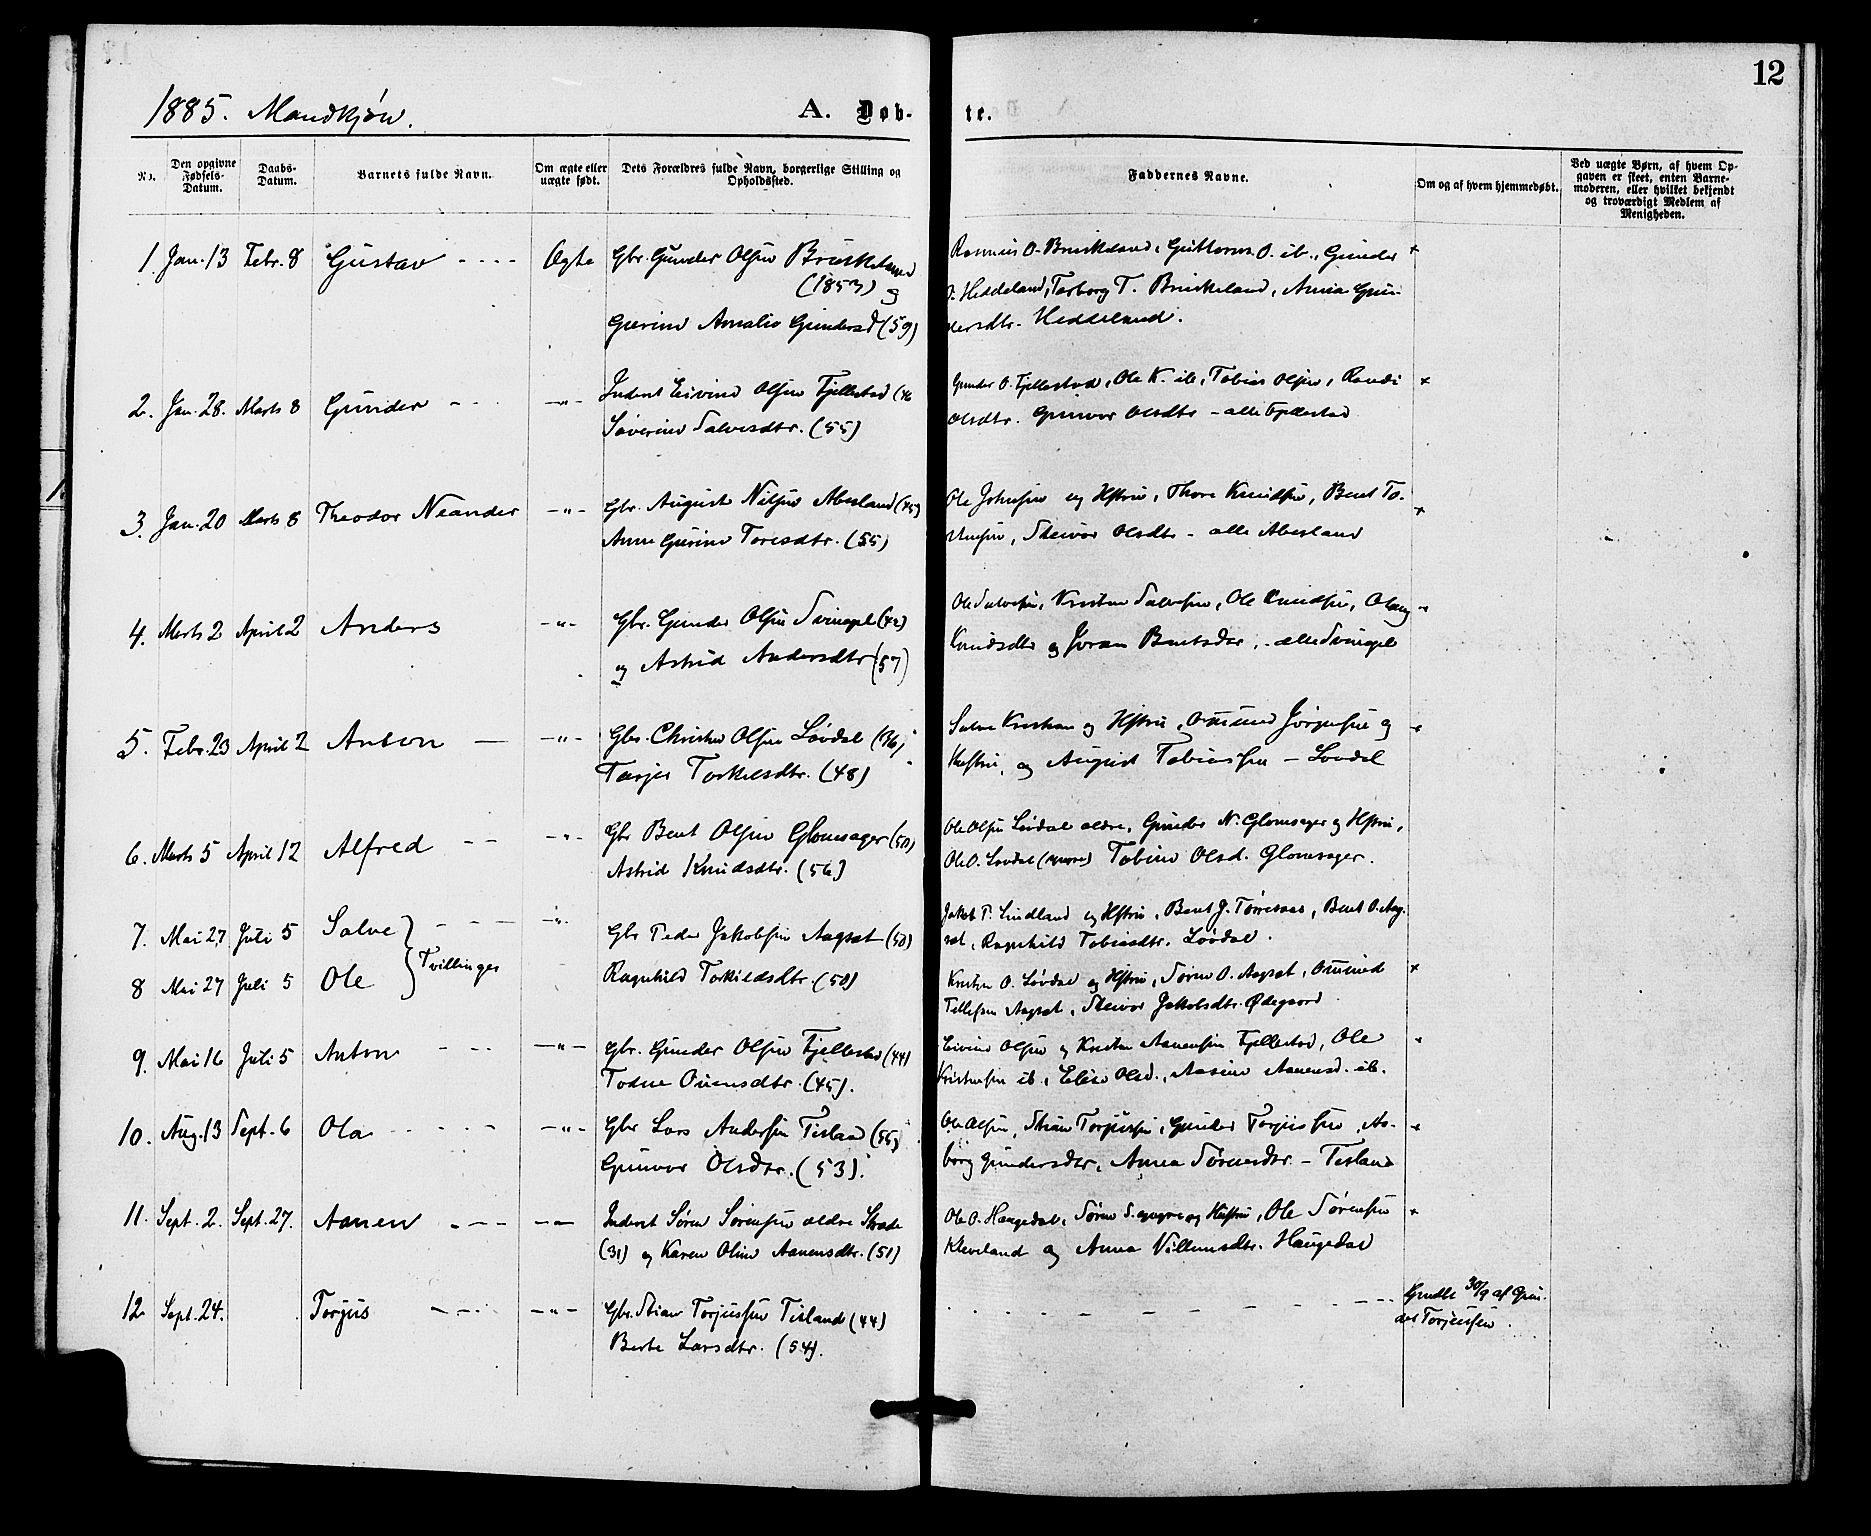 12
1885. Mandkjøn.
A. Døb- te.
No.
Den opgivne Fødsels-Datum.
Daabs-Datum.
Barnets fulde Navn.
Om ægte eller uægte født.
Dets Forældres fulde Navn, borgerlige Stilling og Opholdssted.
Faddernes Navne.
Om og af hvem hjemmedøbt.
Ved uægte Børn, af hvem Opgaven er skeet, enten Barnemoderen, eller hvilket bekjendt og troværdigt Medlem af Menigheden.
1. Jan. 13 Febr. 8 Gustav Ægte Gbr. Gunder Olsen
(1853) og
Gurine Amalie Gundersd (59)
Rasmus O. Guttorm O. ib., Gunder
O. Heddeland, Torborg T. Anna Gun-
dersdtr. Heddeland.
2. Jan. 28. Marts 8 Gunder -"- Inderst Eivind Olsen Fjellestad
Severine Salvesdtr. (55)
Gunder O. Fjellestad, Ole K. ib, Tobias Olsen, Randi
Olsdtr. Gunvor Olsdtr - alle Fjellestad
3. Jan. 20 Marts 8 Theodor Neander -"- Gbr. August Nilsen Abesland (45)
Anne Gurine Toresdtr. (55)
Ole Johnsen og Hstru, Thore Knudsen, Bent To-
Skeivor Olsdtr - alle Abesland
4. Marts 2 April 2 Anders -"- Gbr. Gunder Olsen Svinepl (42)
og Astrid Andersdtr (57)
Ole Salvesen, Kristen Salvesen, Ole Knudsen, Olaug
Knudsdtr og Joran Bentsdtr, - alle Svinepl
5. Febr. 23 April 2 Anton -"- Gbr. Christen Olsen Løvdal (36)
Tarjer Torkilsdtr. (48)
Salve Kristian og Hstru, Omund Jørgensen og
Hustru, og August Tobiassen - Lovdal
6. Marts 5 April 12 Alfred -"- Gbr Bent Olsen Glomsager (50)
Astrid Knudsdtr. (56)
Ole Olsen Løvdal ældre, Gunder N. Glomsager og Hstru,
Ole O. Løvdal (yngre) Tobine Olsd. Glomsager.
7. Mai 27 Juli 5 Salve -"-
Tvillinger
8 Mai 27 Juli 5 Ole
Gbr Peder Jakobsen Aagsat (50)
Ragnhild Torkildsdtr. (50)
Jakob T. Lindland og Hstru, Bent J. Bent O. Aag-
sat, Ragnhild Tobiasdtr. Løvdal.
Kristen O. Løvdal og Hstru, Søren O. Aagsat, Omund
Tellefsen Aagsat, Skeivor Jakobsdtr. Ødegaard.
9. Mai 16 Juli 5 Anton -"- Gbr. Gunder Olsen Fjellestad (44)
Todne Ounensdtr. (45).
Eivind Olsen og Kristen Aanensen Fjellestad, Ole
Kristensen ib., Elise Olsd., Aasine Aanensd. ib.
10. Aug. 13 Sept. 6 Ola -"- Gbr Lars Andersen Tisland (55)
Gunvor Olsdtr. (53).
Ole Olsen, Stian Torjussen, Gunder Torjussen, As-
borg Gundersdtr, Anna Sørensdtr. - Tisland
11. Sept. 2. Sept. 27. Aanen Inderst Søren Sørensen ældre
(31) og Karen Oline Aanensdtr. (51)
Ole O. Haugedal, Søren S. yngre og Hustru, Ole Sørensen
Kleveland og Anna Villumsdtr. Haugedal
12 Sept. 24. Torjus -"- Gbr. Stian Torjussen Tisland (44)
Berte Larsdtr. (54).
30/9 af Gun-
der Torjussen.